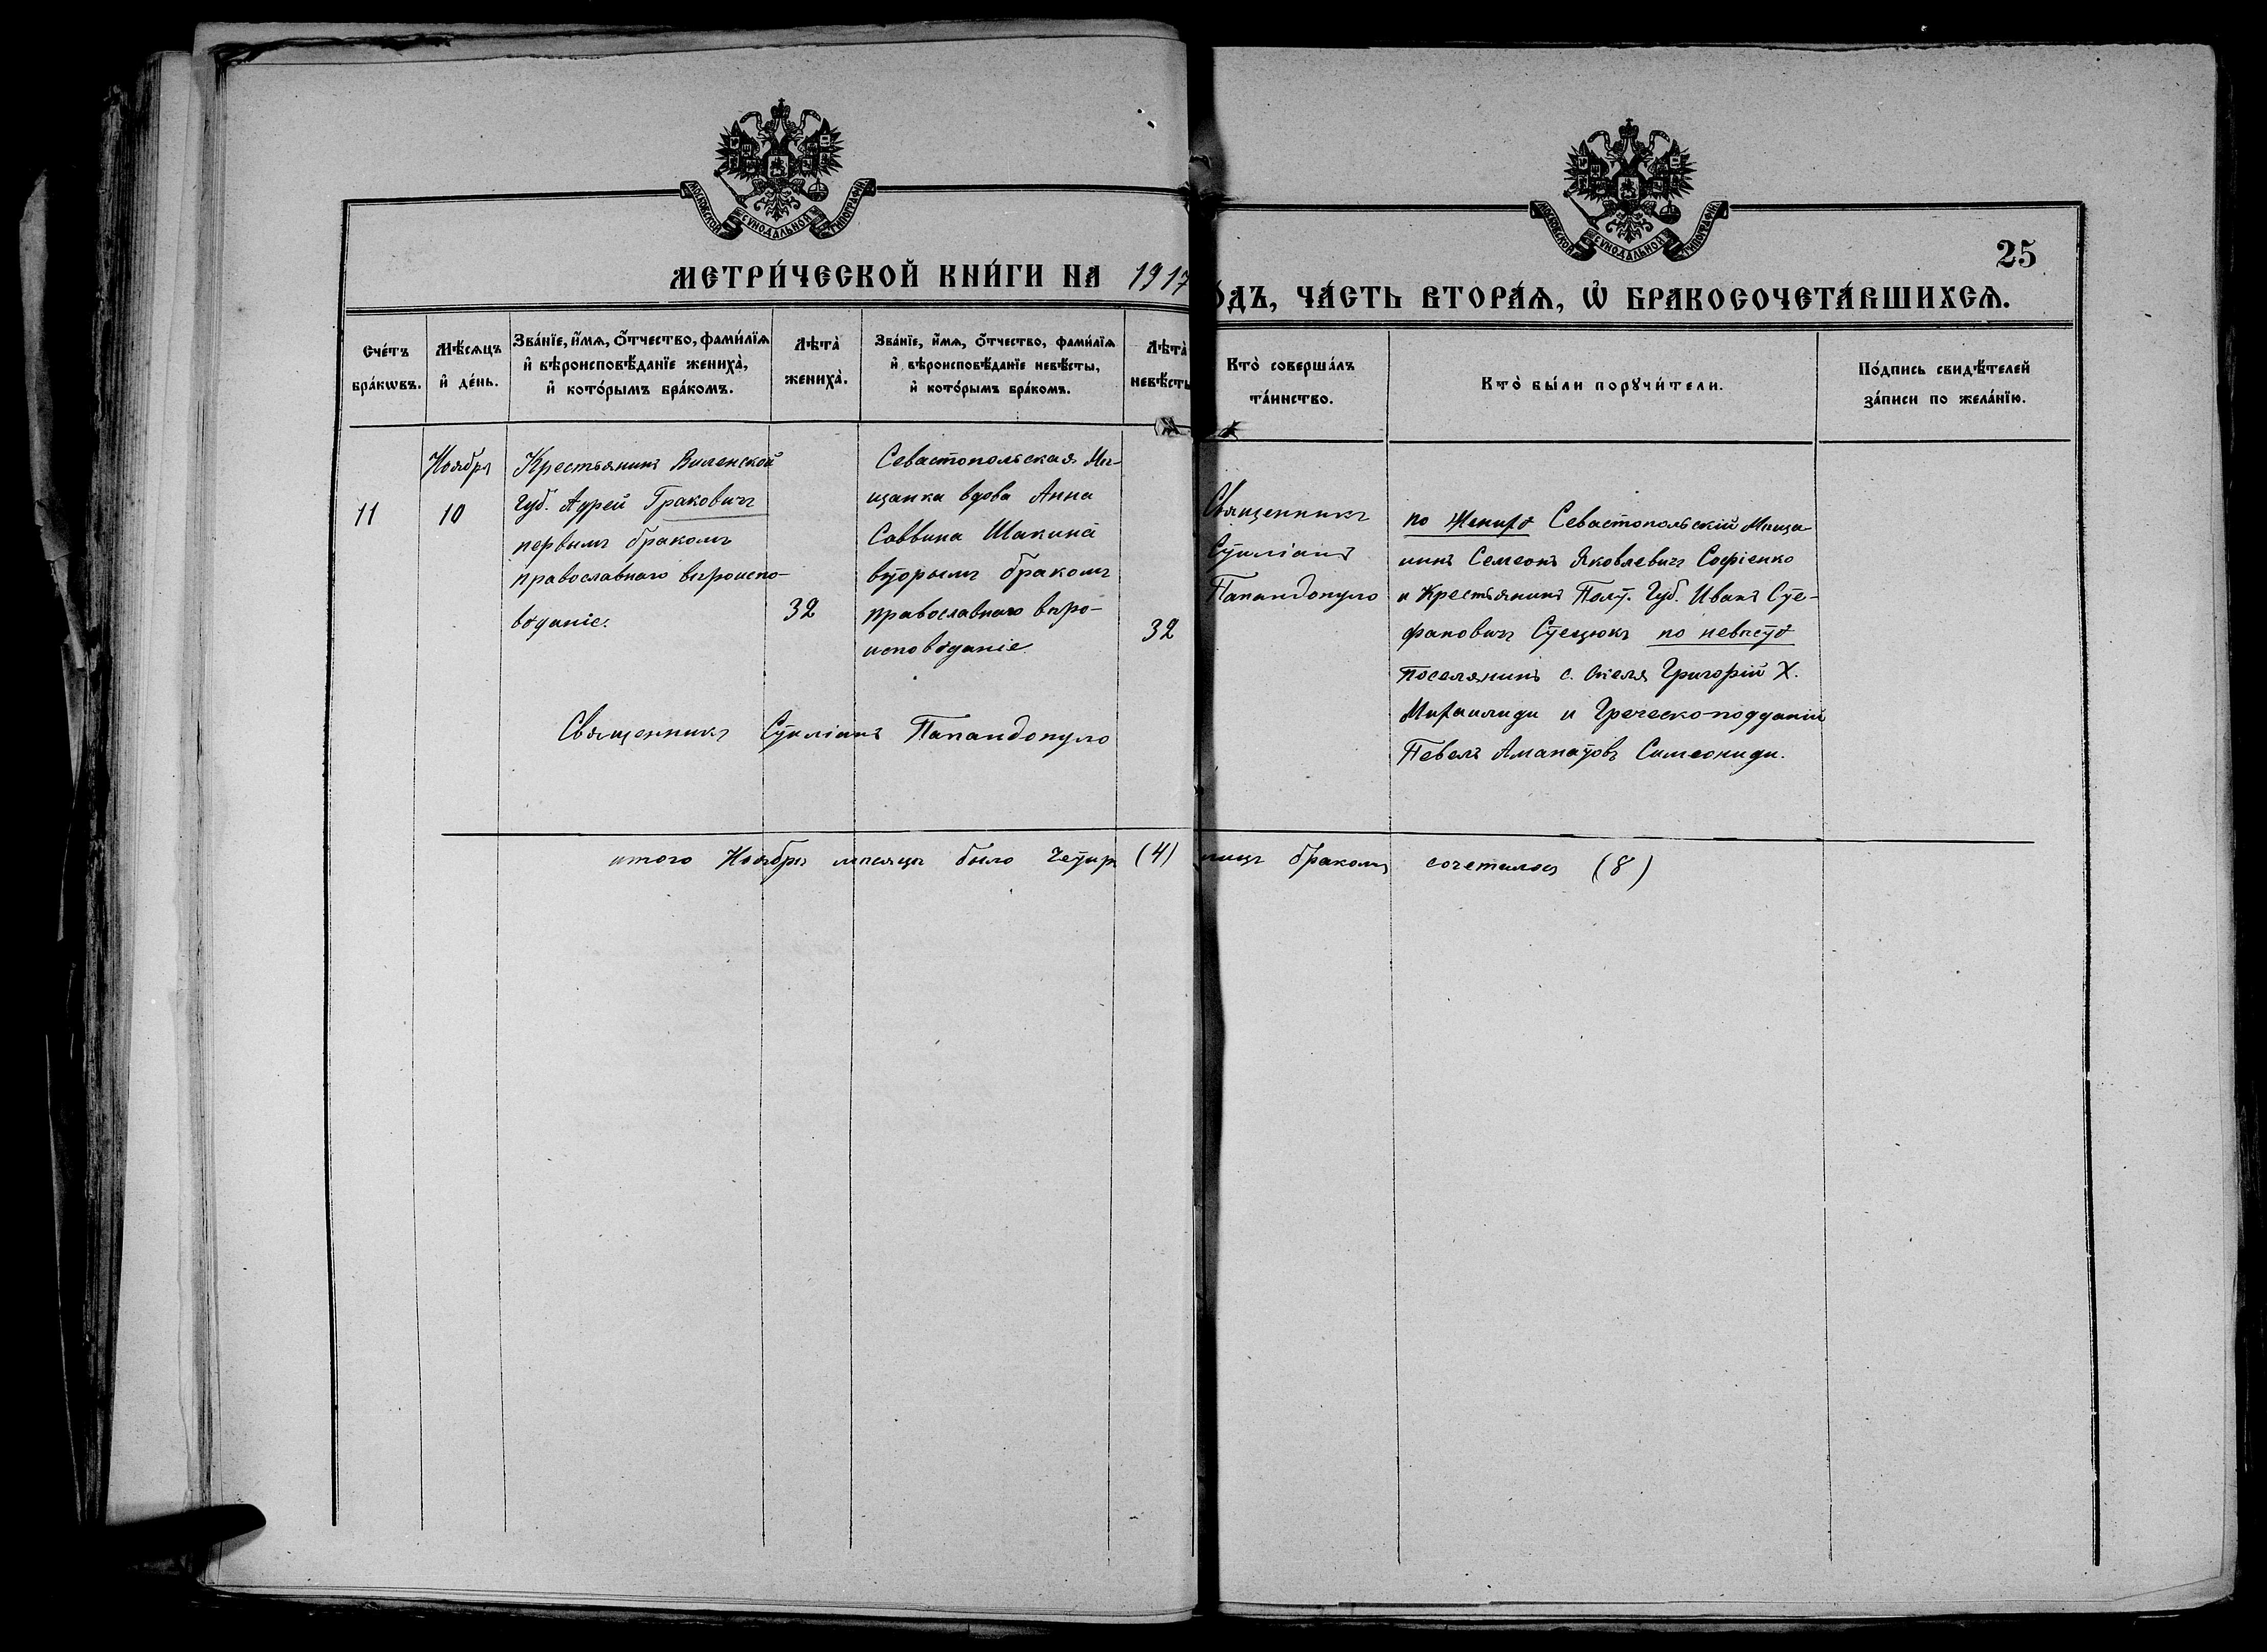 МОСКОВСКОЙ СУНОДАЛЬНОЙ ТИПОГРАФІИ
МОСКОВСКОЙ СУНОДАЛЬНОЙ ТИПОГРАФІИ
25
МЕТРИ́ЧЕСКОЙ КНИ́ГИ НА 1917
ОДЪ, ЧА́СТЬ ВТОРА́Я, Ѡ҆ БРАКОСОЧЕТА́ВШИХСѦ.
Сче́тъ
бра́кѡвъ.
Мѣ́сѧцъ
и҆ де́нь.
Зва́нїе, и҆́мѧ, о҆́тчество, фами́лїѧ
и҆ вѣроисповѣ́данїе жениха̀,
и҆ кото́рымъ бра́комъ.
Лѣта̀
жениха̀.
Зва́нїе, и҆́мѧ, о҆́тчество, фами́лїѧ
и҆ вѣроисповѣ́данїе невѣ́сты,
и҆ кото́рымъ бра́комъ.
Лѣта̀
невѣ́сты
Кто̀ соверша́лъ
та́инство.
Кто̀ бы́ли порꙋчи́тели.
По́дпись свидѣ́телей
за́писи по жела́нїю.
11
Ноября
10
Крестьянинъ Виленской
Губ. Адрей Гракович
первымъ бракомъ
православнаго вѣроиспо-
вѣданіе.
32
Севастопольская Мѣ-
щанка вдова Анна
Саввина Шакина
вторымъ бракомъ
православнаго вѣро-
исповѣданіе
32
Священникъ
Стиліанъ
Папандопуло
по жениху Севастопольскій Мѣща-
нинъ Семеонъ Яковлевичъ Софіенко
и Крестьянинъ Полт. Губ. Иванъ Сте-
фановичъ Стецюкъ по невѣстѣ
поселянинъ с. Григорій Х.
Михаилиди и Греческо-подданій
Певелъ Симеониди.
Священникъ Стиліанъ Папандопуло
итого Ноября мѣсяцъ было четыр (4) лицъ бракомъ сочеталось (8)